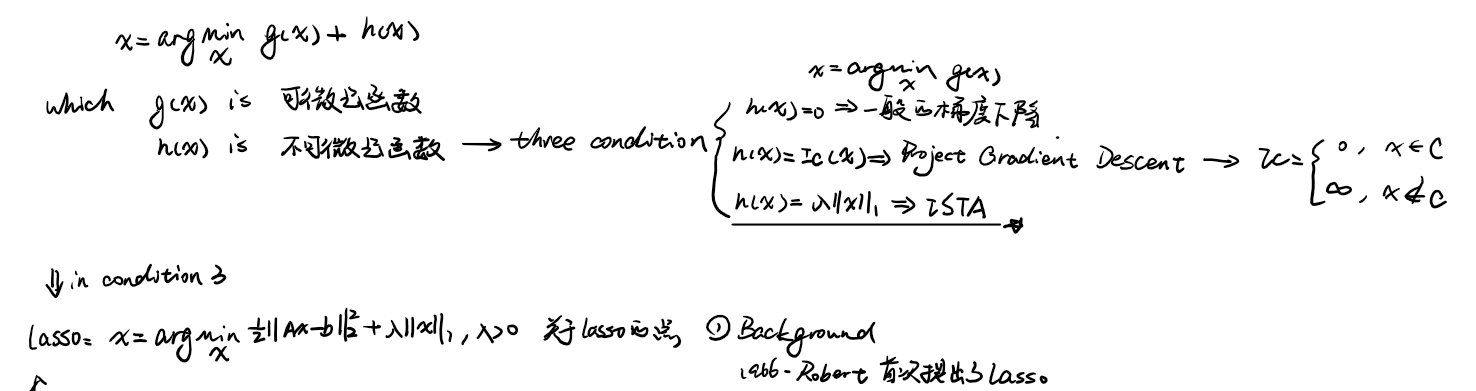 x = arg min_x g(x) + h(x)
which g(x) is 可微凸函数
h(x) is 不可微凸函数 → three condition
x = argmin_x g(x)
h(x)=0 ⇒ 一般的梯度下降
h(x)=Ic(x) ⇒ Project Gradient Descent → Ic = { 0, x∈C
∞, x∉C
h(x)=λ||x||₁ ⇒ ISTA
⇓ in condition 3
Lasso: x = arg min_x ½||Ax-b||₂² + λ||x||₁, λ>0 关于lasso的点 ① Background
Robert 首次提出了Lasso。